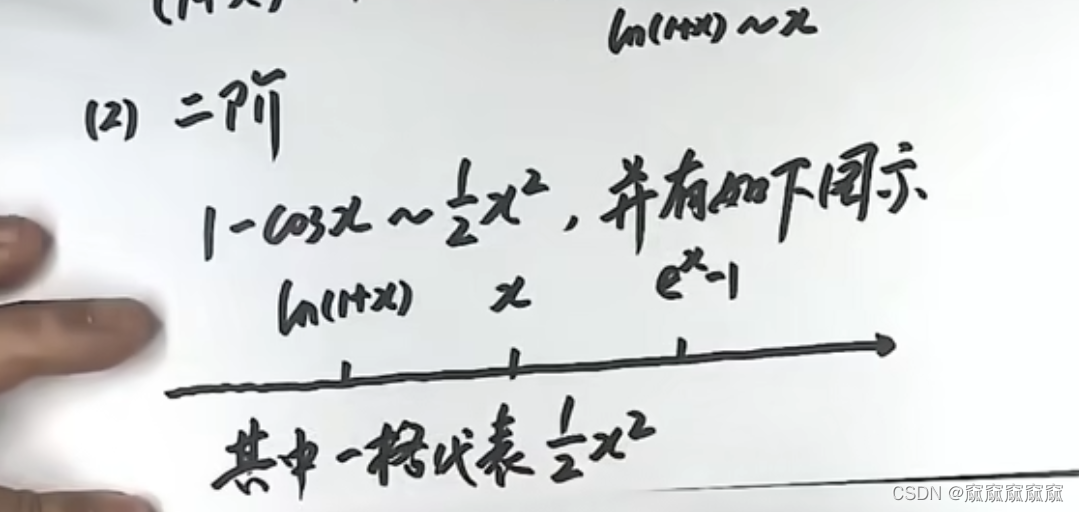 (1+x)
ln(1+x)~x
(2) 二阶
1-cosx~½x², 并有如下图示
ln(1+x) x eˣ-1
其中一格代表½x²
CSDN @麻麻麻麻麻